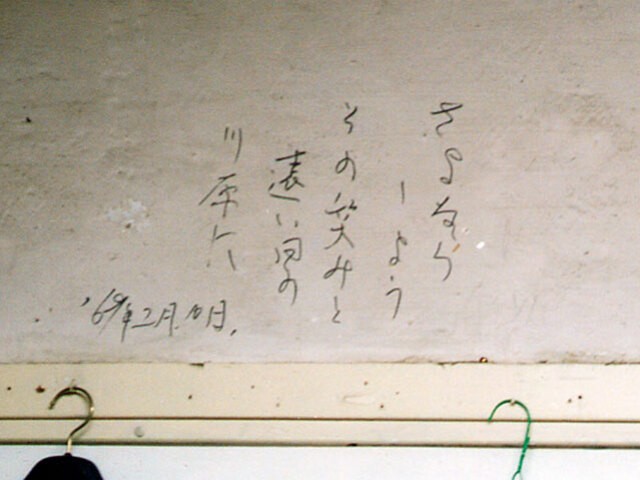 さよなら
しよう
その笑みと
遠い日の
川原
'69年二月 日